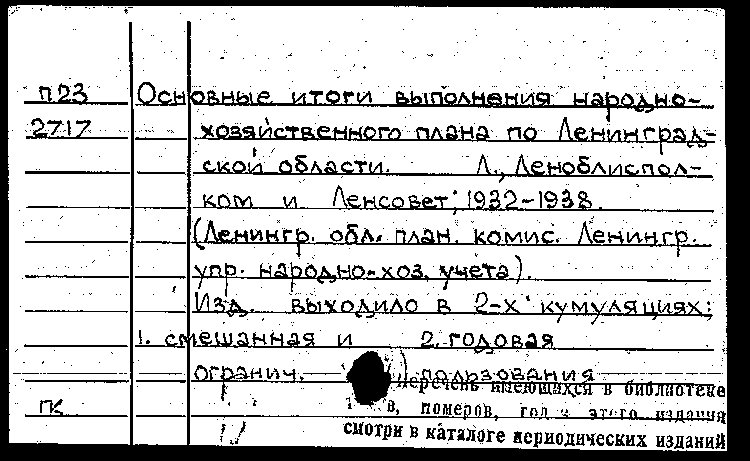 П23 Основные итоги выполнения народно-
2717 хозяйственного плана по Ленинград-
ской области. Л., Леноблиспол-
ком и Ленсовет; 1932-1938.
(Ленингр. обл. план. комис. Ленингр.
упр. народно-хоз. учета).
Изд. выходило в 2-х кумуляциях:
1. смешанная и 2. годовая
огранич. ) пользования
перечень имеющихся в библиотеке
ПК в, номеров, год этого издания
смотри в каталоге периодических изданий